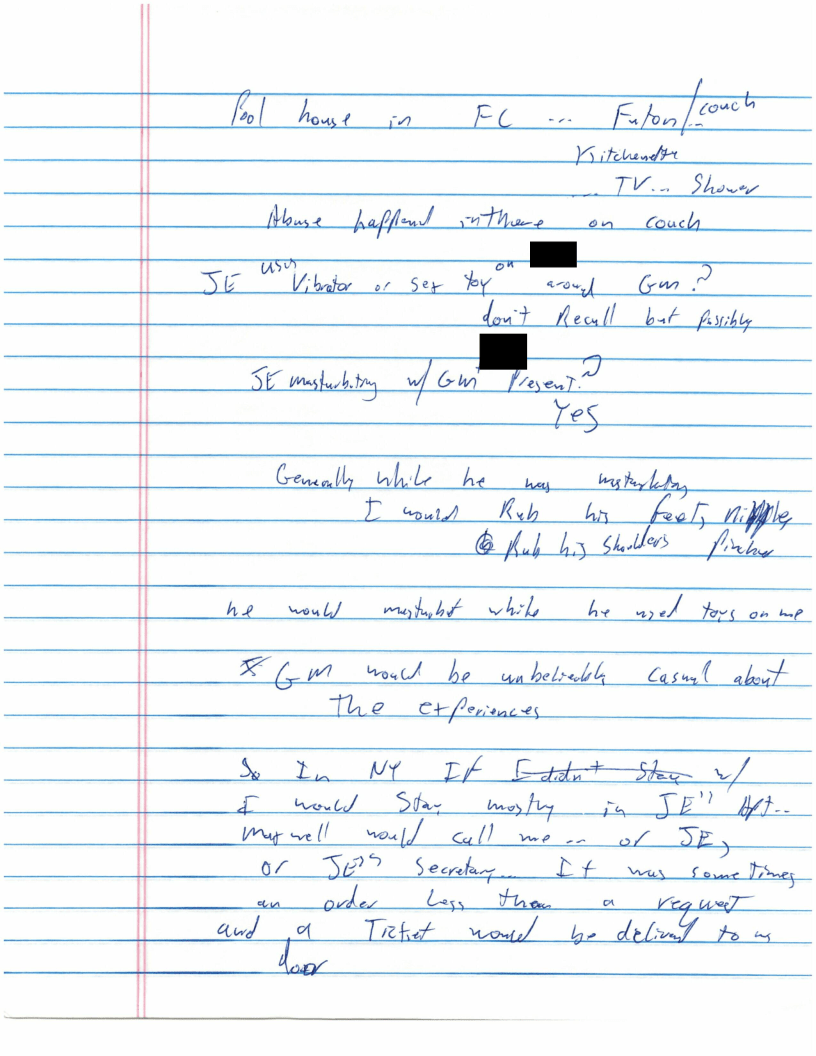 Pool house in FL ... Futon/couch
Kitchenette
... TV... Shower
Abuse happend in there on couch
JE usin Vibrator or sex toy on around GM?
don't Recall but possibly
JE masturbating w/ GM + Present?
Yes
Generally while he was masturbating
I would Rub his feet, nipples,
Rub his shoulders
he would masturbat while he used toys on me
GM would be unbelievably casual about
The experiences
So In NY If I didn't Stay w/
I would Stay mostly in JE's Apt...
maxwell would call me ... or JE,
or JE's secretary... It was sometimes
an order less than a request
and a Ticket would be deliverd to my
door